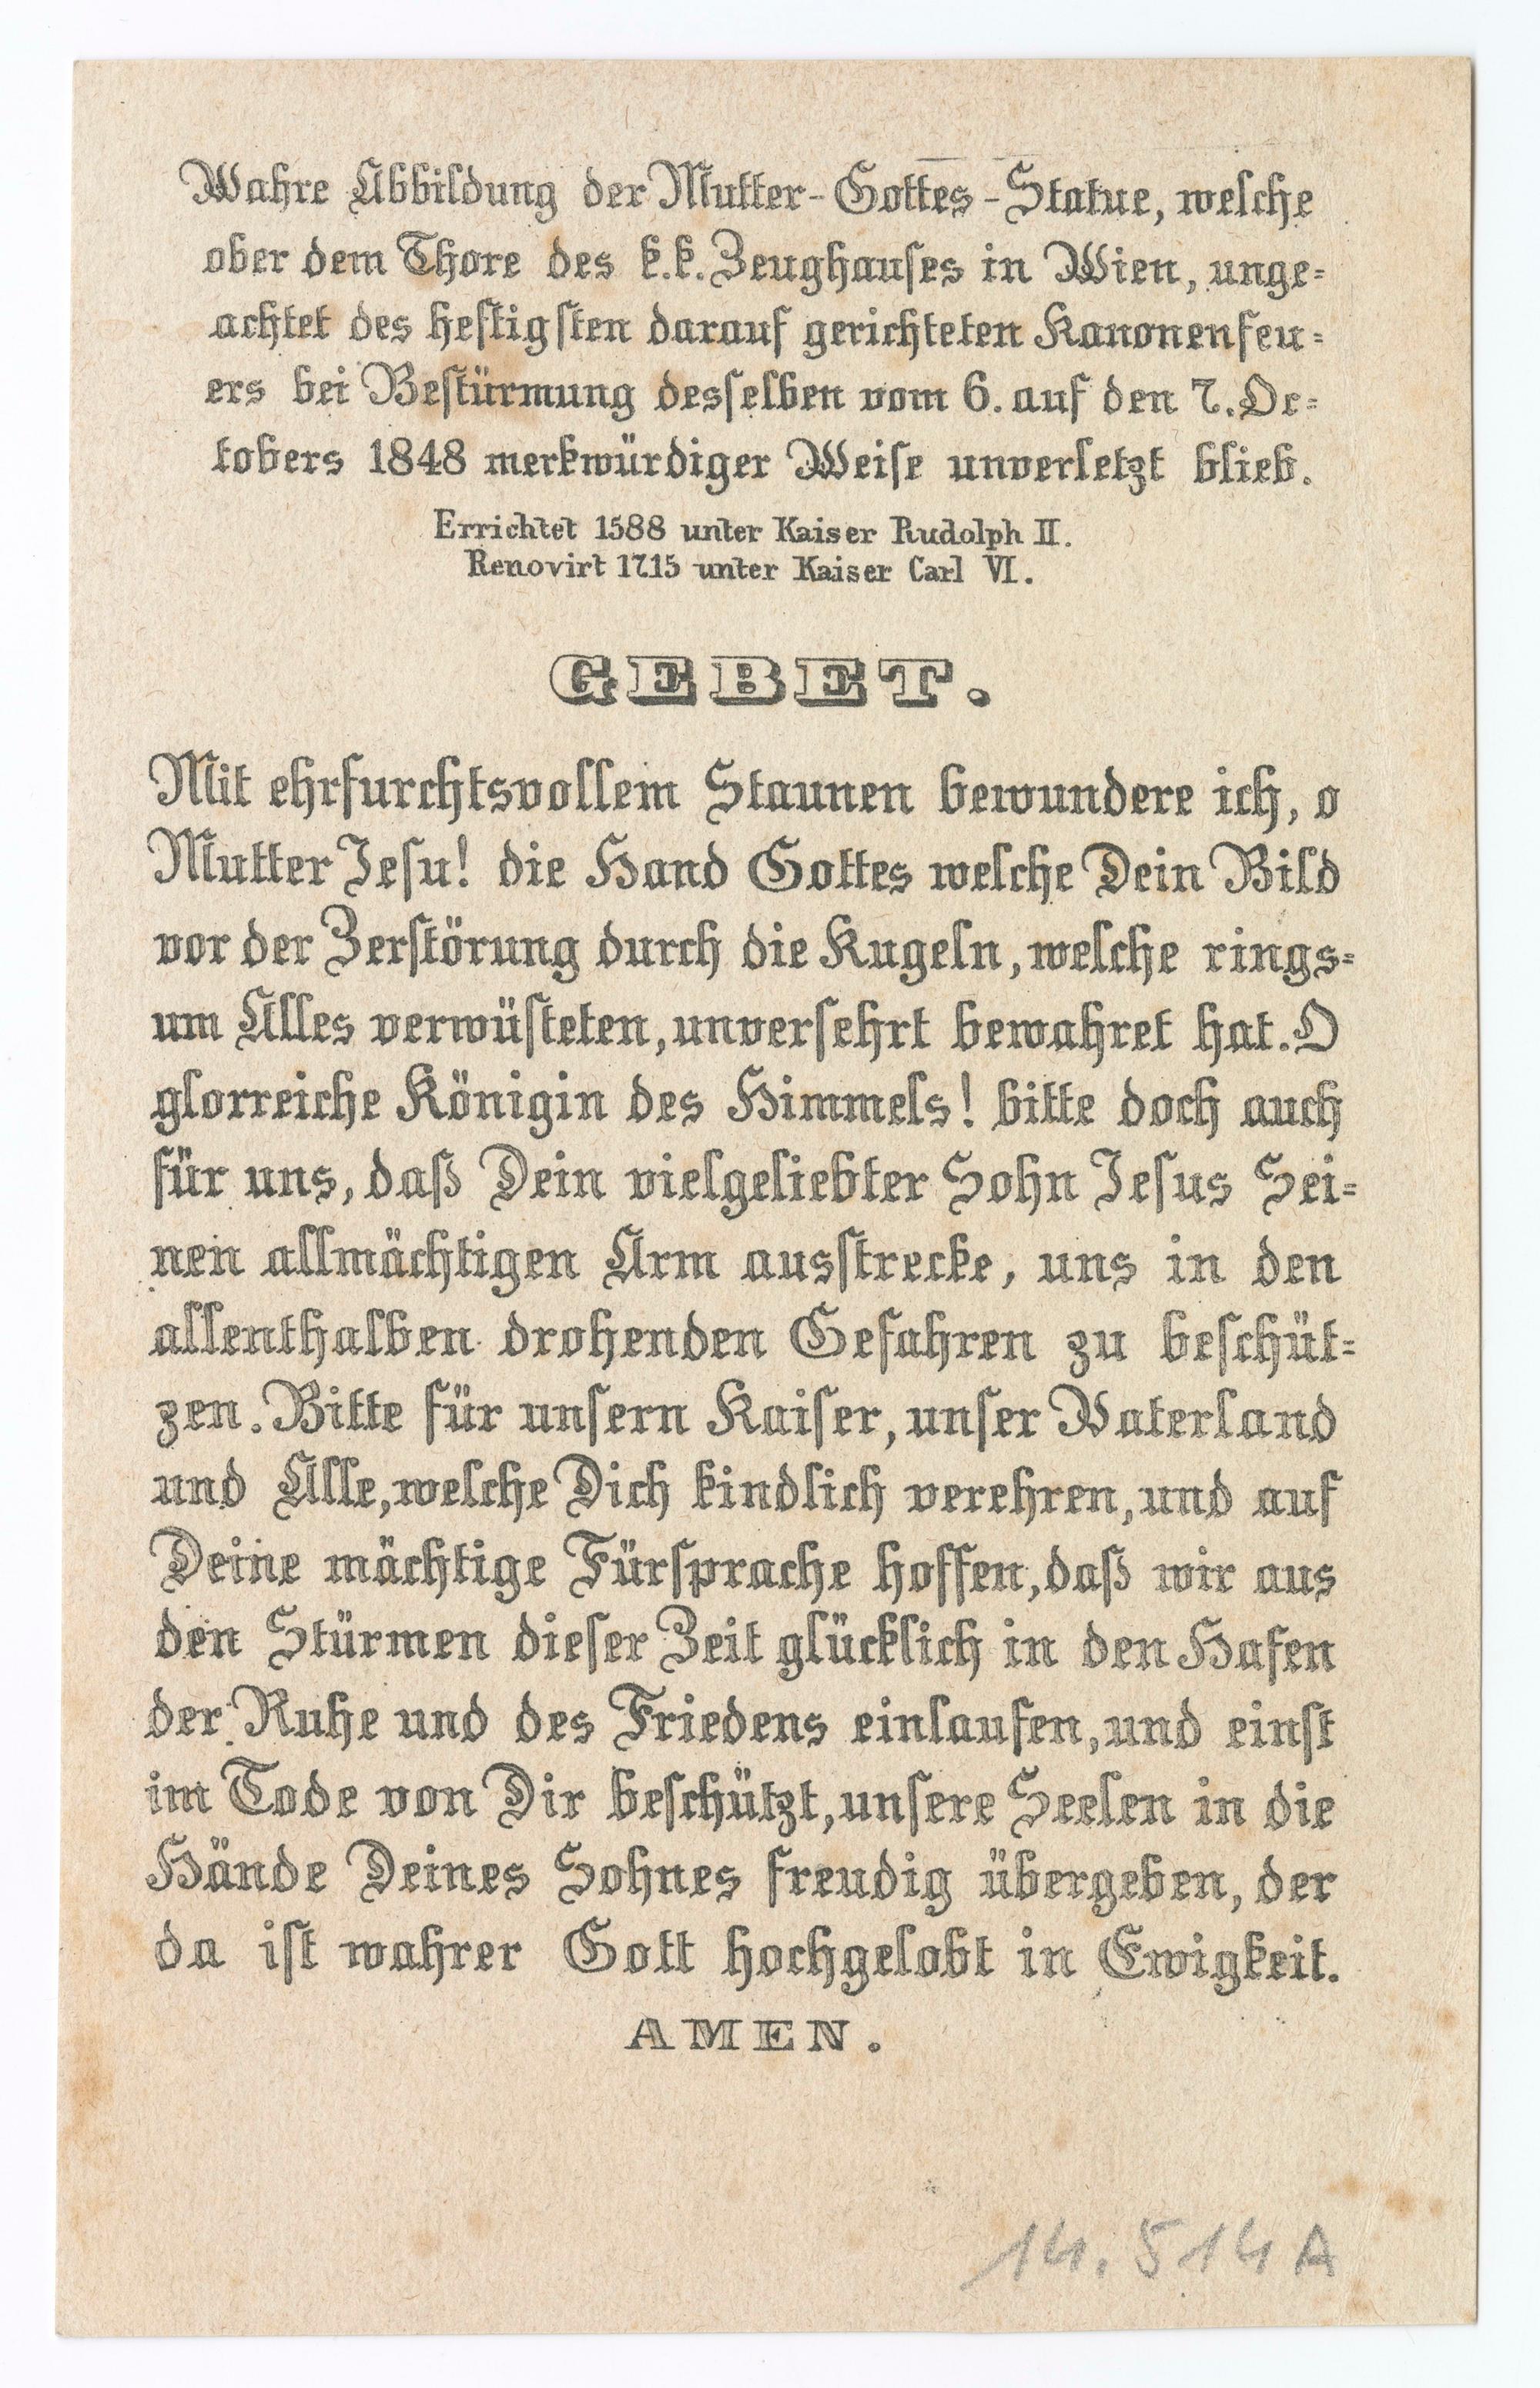 Wahre Abbildung der Mutter-Gottes-Statue, welche
ober dem Thore des k.k. Zeughauses in Wien, unge=
achtet des heftigsten darauf gerichteten Kanonenfeu=
ers bei Bestürmung desselben vom 6. auf den 7. Oc=
tobers 1848 merkwürdiger Weise unverletzt blieb.
Errichtet 1588 unter Kaiser Rudolph II.
Renovirt 1715 unter Kaiser Carl VI.
GEBET.
Mit ehrfurchtsvollem Staunen bewundere ich, o
Mutter Jesu! die Hand Gottes welche Dein Bild
vor der Zerstörung durch die Kugeln, welche rings=
um Alles verwüsteten, unversehrt bewahret hat. O
glorreiche Königin des Himmels! bitte doch auch
für uns, daß Dein vielgeliebter Sohn Jesus Sei=
nen allmächtigen Arm ausstrecke, uns in den
allenthalben drohenden Gefahren zu beschüt=
zen. Bitte für unsern Kaiser, unser Vaterland
und Alle, welche Dich kindlich verehren, und auf
Deine mächtige Fürsprache hoffen, daß wir aus
den Stürmen dieser Zeit glücklich in den Hafen
der Ruhe und des Friedens einlaufen, und einst
im Tode von Dir beschützt, unsere Seelen in die
Hände Deines Sohnes freudig übergeben, der
da ist wahrer Gott hochgelobt in Ewigkeit.
AMEN.
14.514A